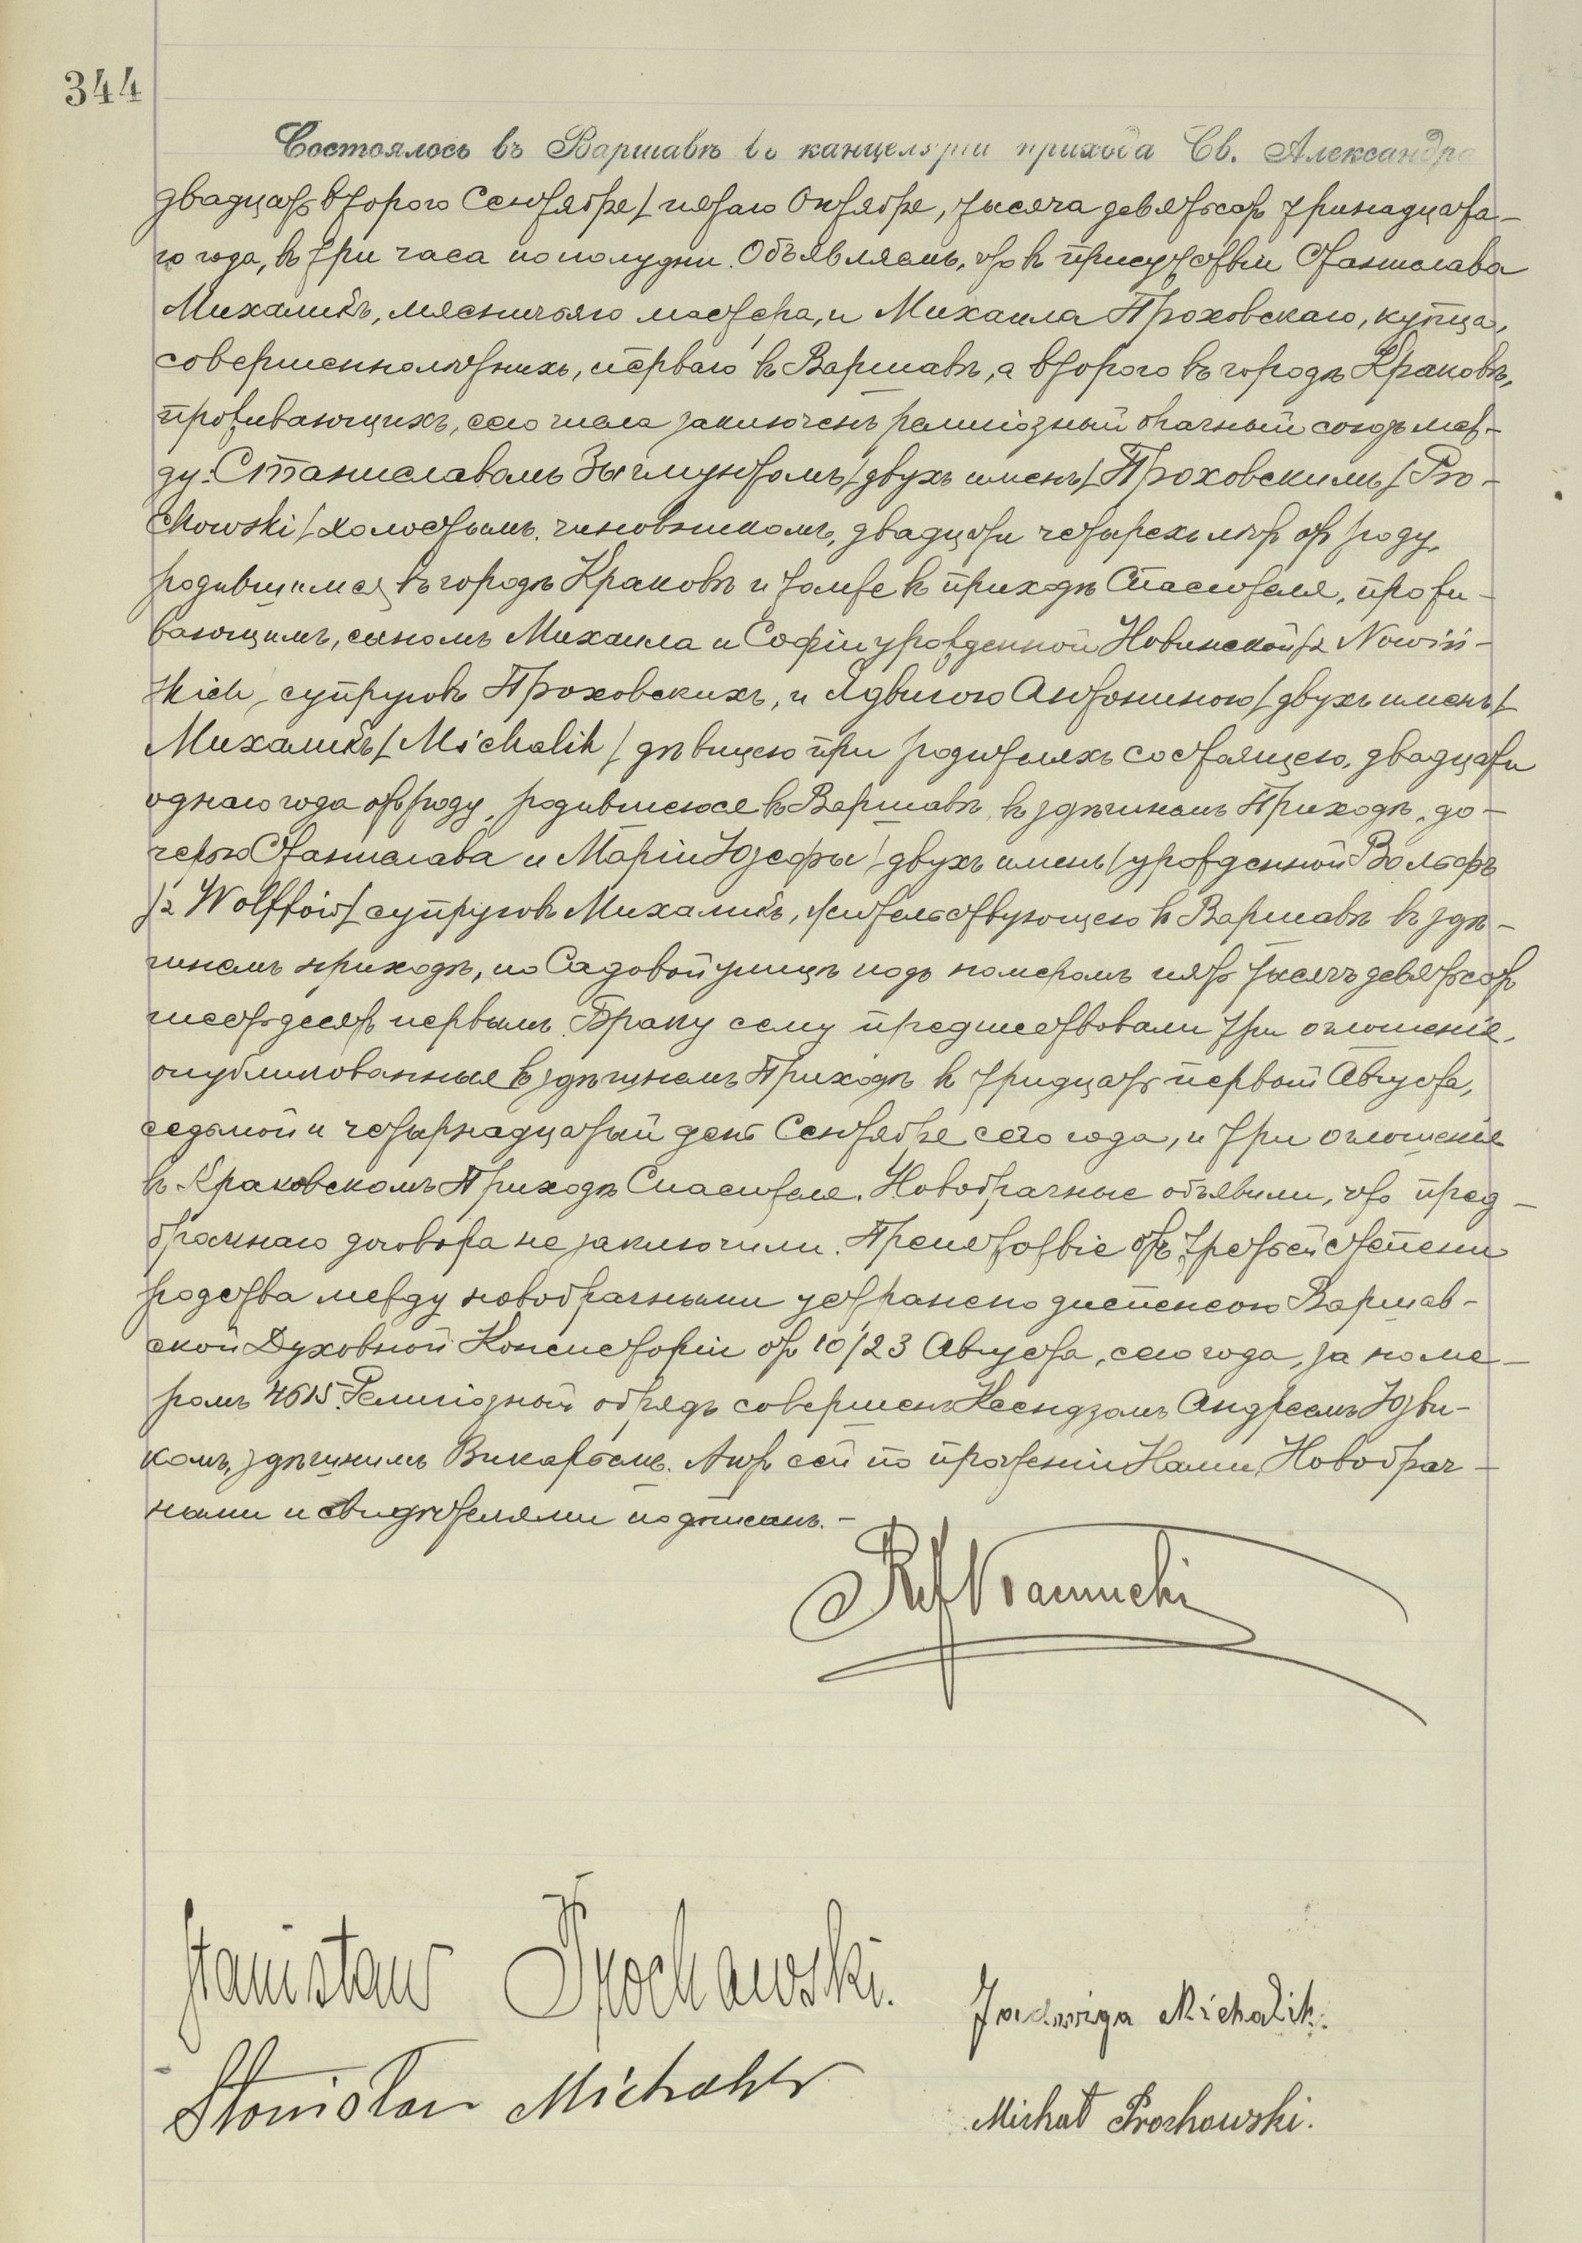 344
Состоялось въ Варшавѣ въ канцеляріи прихода Св. Александра
двадцать второго Сентября / пятаго Октября, тысяча девятьсотъ тринадцата-
го года, въ три часа пополудни. Объявляемъ, что въ присутствіи Станислава
Михаликъ, мясничьяго мастера, и Михаила Проховскаго, купца,
совершеннолѣтнихъ, перваго въ Варшавѣ, а второго въ городѣ Краковѣ,
проживающихъ, сего числа заключенъ религіозный брачный союзъ меж-
ду: Станиславомъ Зыгмунтомъ / двухъ именъ / Проховскимъ / Pro-
chowski / холостымъ, чиновникомъ, двадцати четырехъ лѣтъ отъ роду,
родившимся въ городѣ Краковѣ и тамже въ приходѣ Спасителя, прожи-
вающимъ, сыномъ Михаила и Софіи урожденной Новинской / z Nowiń-
skich / супруговъ Проховскихъ, и Ядвигою Антониною / двухъ именъ /
Михаликъ / Michalik / дѣвицею при родителяхъ состоящею, двадцати
одного года отъ роду, родившеюся въ Варшавѣ, въ здѣшнемъ Приходѣ, до-
черью Станислава и Маріи Юзефы / двухъ именъ / урожденной Вольфъ
/ z Wolffów / супруговъ Михаликъ, жительствующею въ Варшавѣ въ здѣ-
шнемъ приходѣ, по Садовой улицѣ подъ номеромъ пять тысячъ девятьсотъ
шестьдесятъ первымъ. Браку сему предшествовали три оглашенія,
опубликованныя въ здѣшнемъ Приходѣ въ тридцать первый Августа,
седьмой и четырнадцатый день Сентября сего года, и три оглашенія
въ Краковскомъ Приходѣ Спасителя. Новобрачные объявили, что пред-
брачнаго договора не заключили. Препятствіе отъ третьей степени
родства между новобрачными устранено диспенсою Варшав-
ской Духовной Консисторіи отъ 10/23 Августа, сего года, за номе-
ромъ 4615. Религіозный обрядъ совершенъ Ксендзомъ Андреемъ Юзви-
комъ, здѣшнимъ Викарьемъ. Актъ сей по прочтеніи Нами, Новобрач-
ными и свидѣтелями подписанъ. -
Stanisław Prochowski.
Jadwiga Michalik.
Stanisław Michalik
Michał Prochowski.